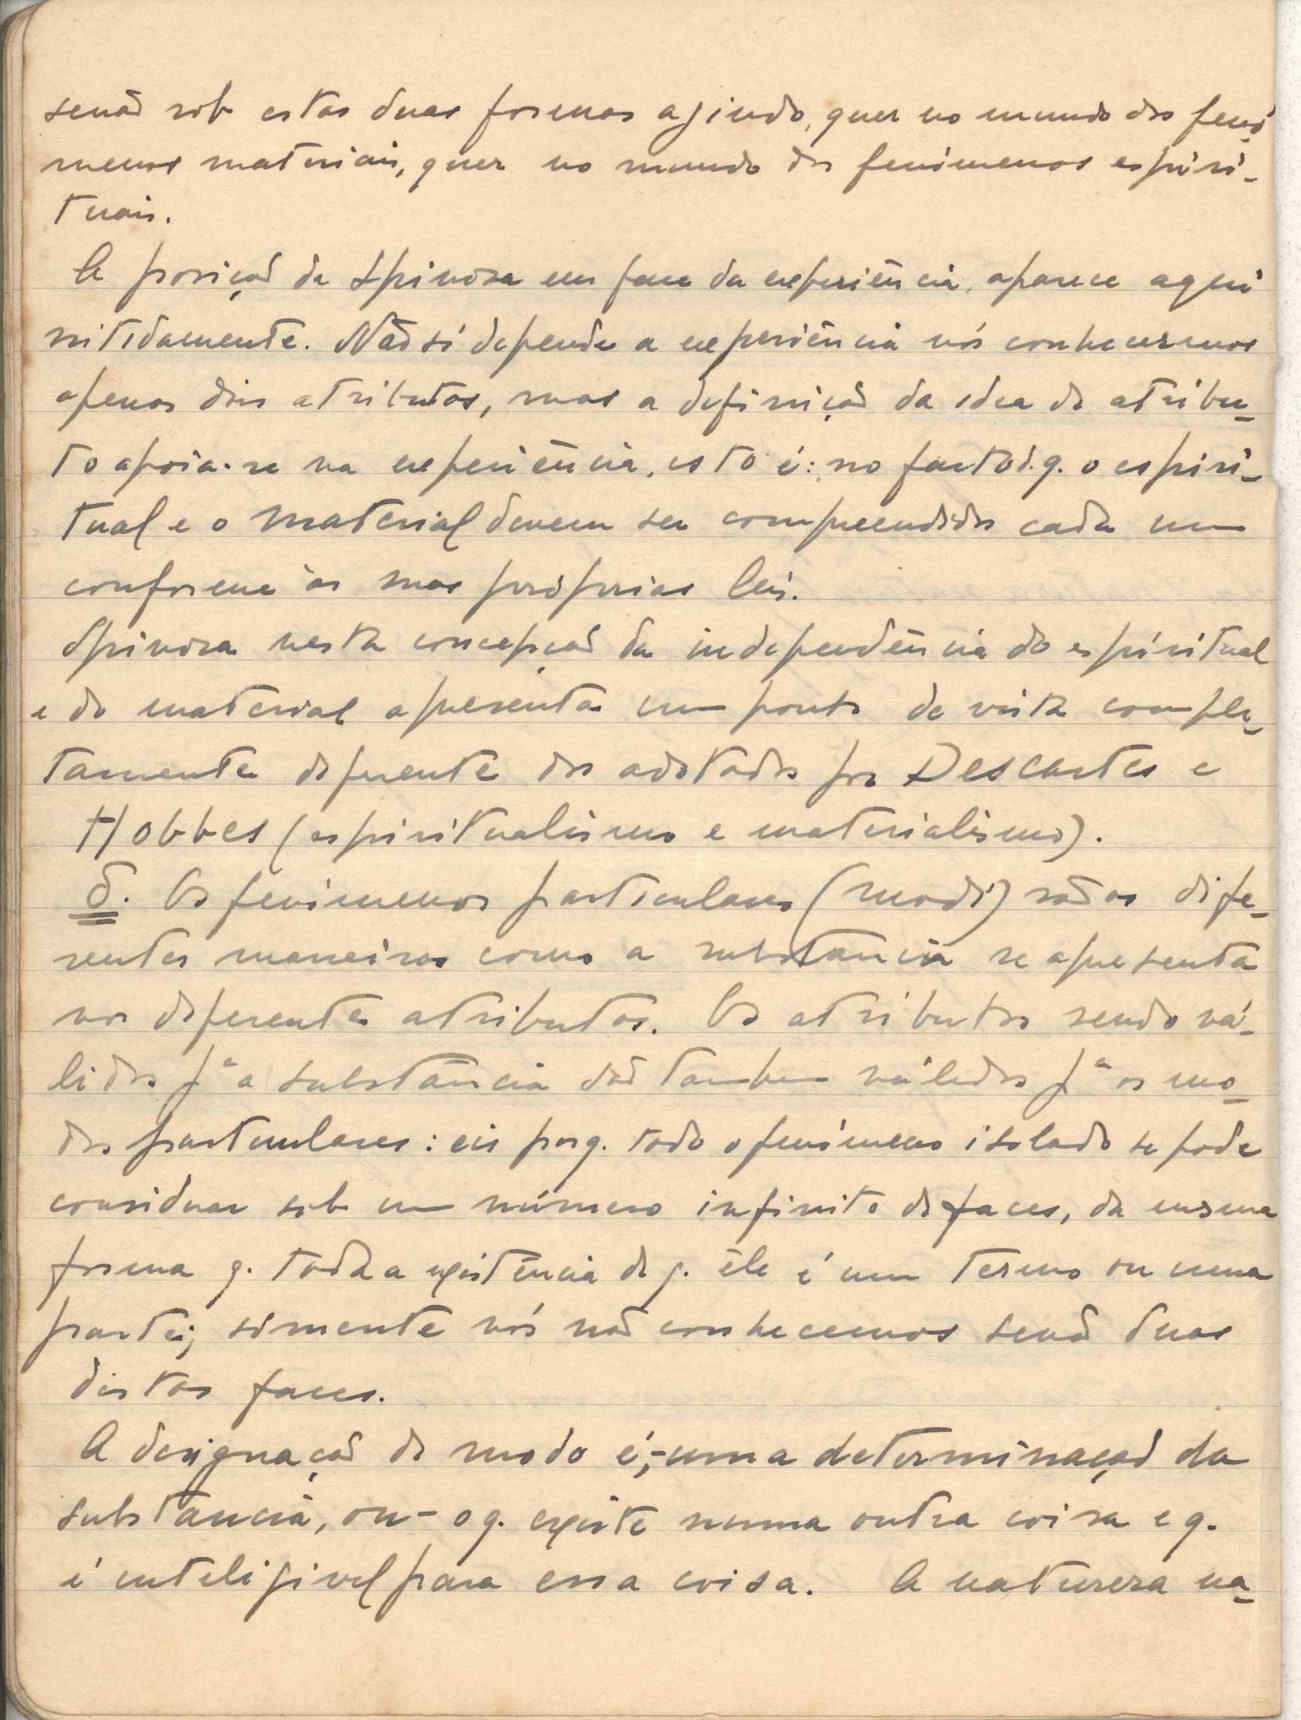 senão sob estas duas formas agindo, quer no mundo dos fenó
menos materiais, quer no mundo dos fenómenos espiri-
tuais.
A posição de Spinosa em face da experiência, aparece aqui
nitidamente. Não só depende a experiência nós conhecermos
apenas dois atributos, mas a definição da idea de atribu-
to apoia-se na experiência, isto é: no facto d.q. o espiri-
tual e o material devem ser compreendidos cada um
conforme às suas próprias leis.
Spinosa nesta concepção da independência do espiritual
e do material apresenta um ponto de vista comple-
tamente diferente dos adotados por Descartes e
Hobbes (espiritualismo e materialismo).
δ. Os fenómenos particulares (modi) são as dife-
rentes maneiras como a substância se apresenta
nos diferentes atributos. Os atributos sendo vá-
lidos pª a substância são tambem válidos pª os mo-
dos particulares: eis porq. todo o fenómeno isolado se pode
considerar sob um número infinito de faces, da mesma
forma q. toda a existência de q. êle é um termo ou uma
parte; sómente nós não conhecemos senão duas
distas faces.
A designação de modo é;-uma determinação da
substância, ou- o q. existe numa outra coisa e q.
é inteligivel para essa coisa. A natureza na-